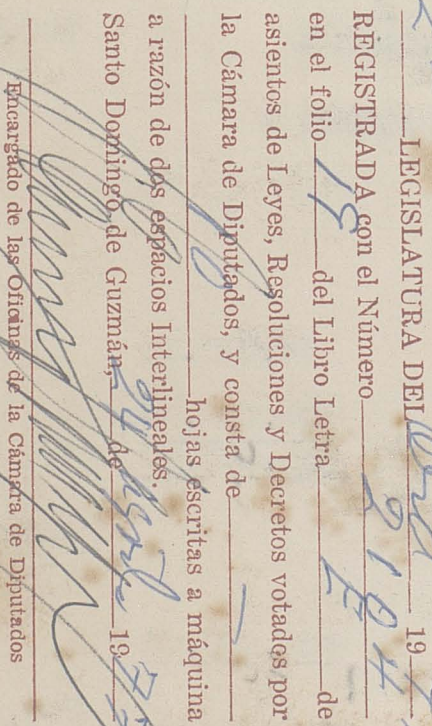 LEGISLATURA DEL Ord 19
REGISTRADA con el Número 2184
en el folio 18 del Libro Letra de
asientos de Leyes, Resoluciones y Decretos votados por
la Cámara de Diputados, y consta de
hojas escritas a máquina
a razón de dos espacios Interlineales.
Santo Domingo de Guzmán, 24 de Agosto 19
Encargado de las Oficinas de la Cámara de Diputados